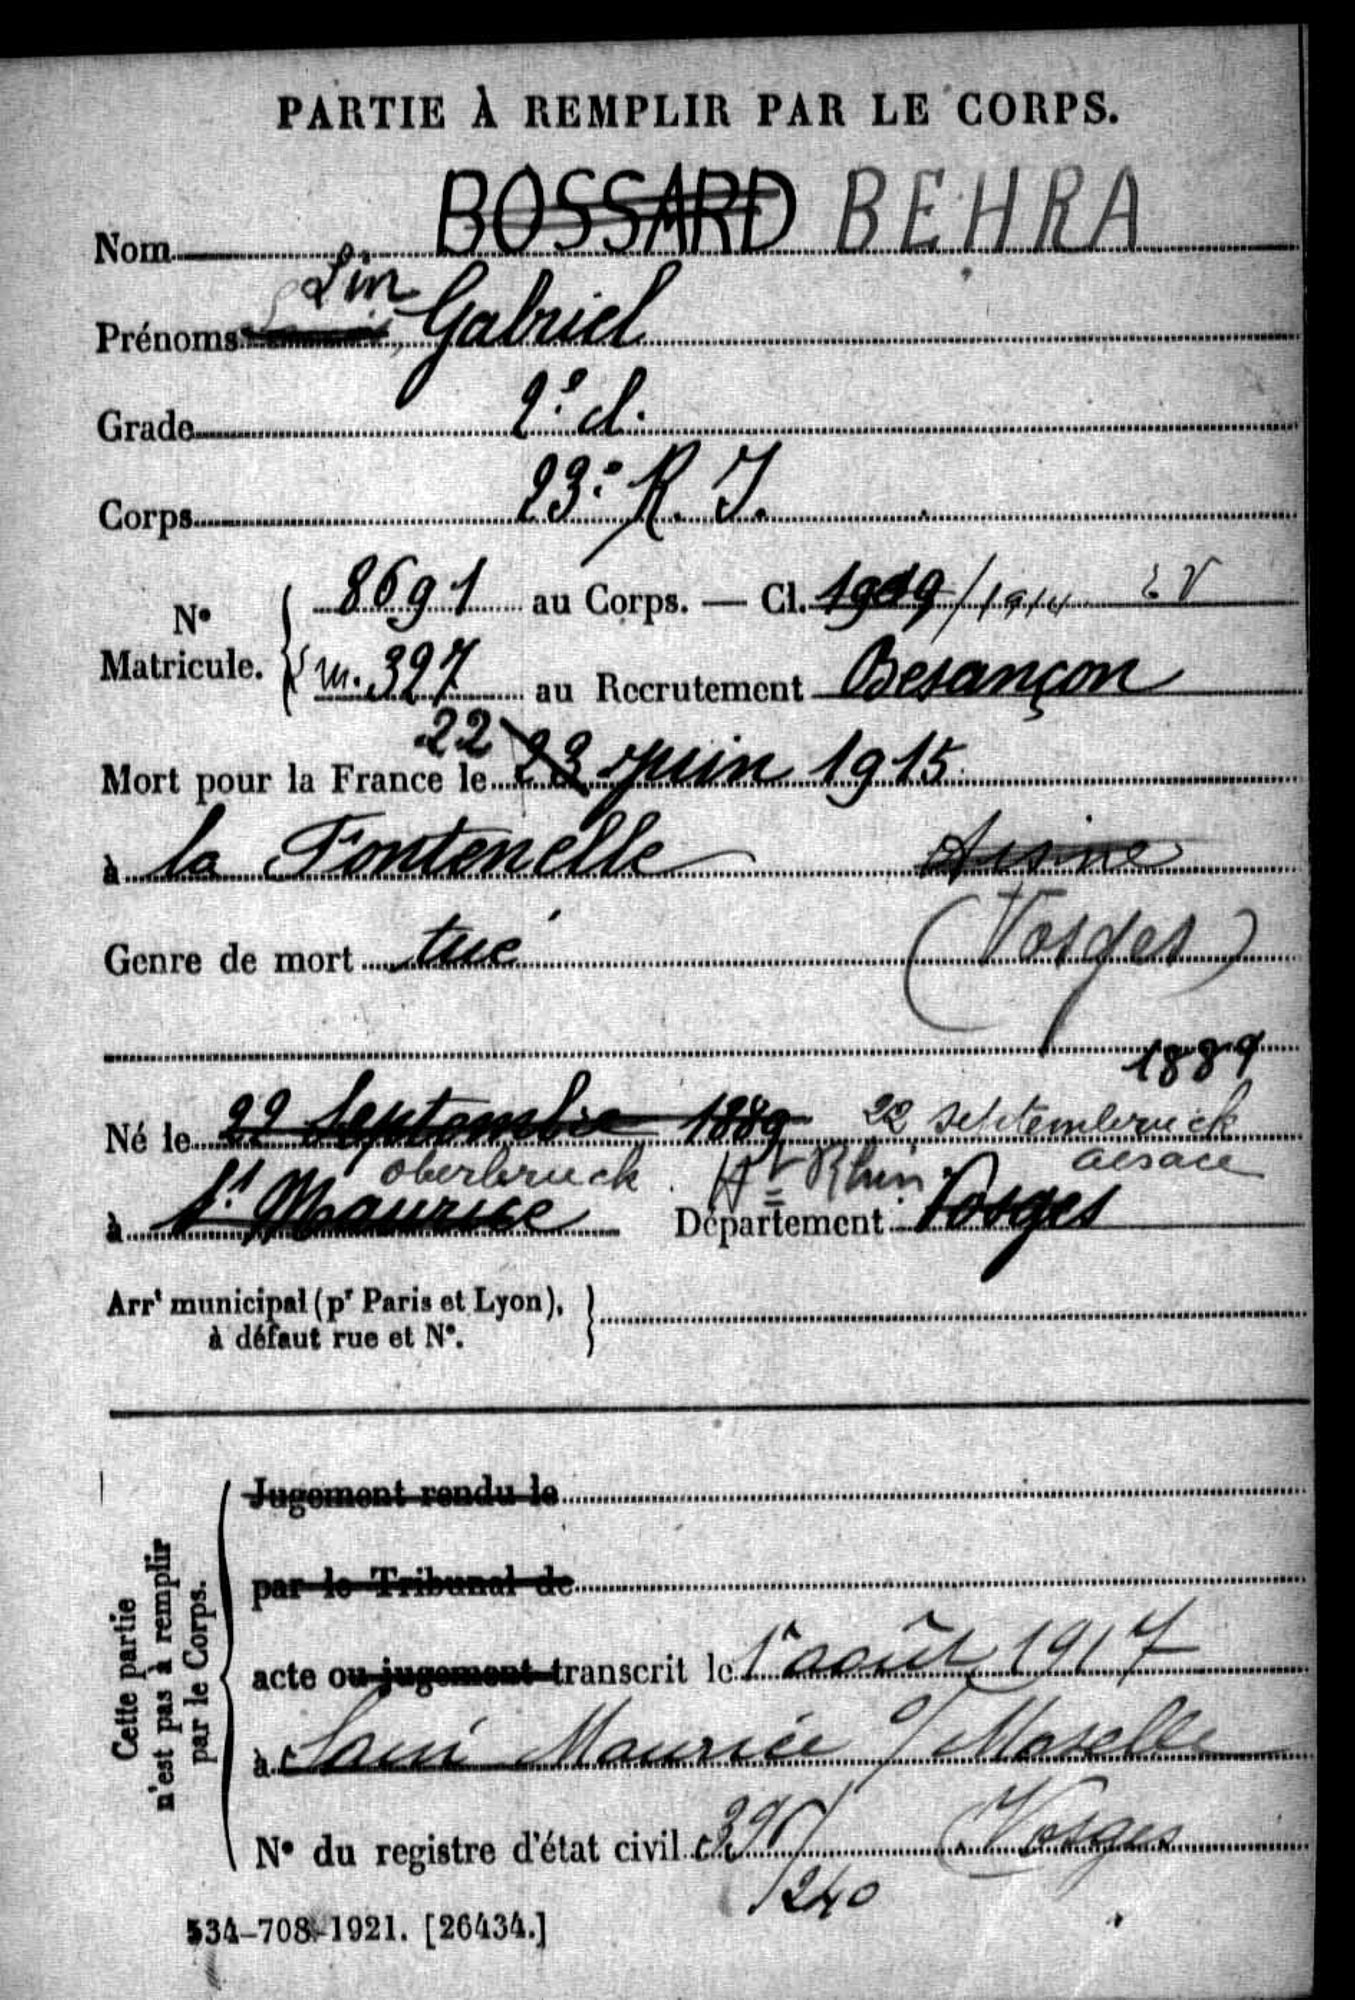 PARTIE À REMPLIR PAR LE CORPS.
Nom BOSSARD BEHRA
Lin
Prénoms Gabriel
Grade 2e cl.
Corps 23e R. I.
N° Matricule. 8691 au Corps. — Cl. 1909/1914 EV
m. 327 au Recrutement Besançon
22
Mort pour la France le 23 juin 1915
à la Fontenelle Aisne
Genre de mort tué (Vosges)
1889
Né le 22 Septembre 1889 22 septembre
oberbruck Ht Rhin alsace
à St Maurice Département Vosges
Arrt municipal (pr Paris et Lyon),
à défaut rue et N°.
Cette partie
n'est pas à remplir
par le Corps.
Jugement rendu le
par le Tribunal de
acte ou jugement transcrit le 1r août 1917
à Saint Maurice s/ Moselle
N° du registre d'état civil (Vosges)
/240
534-708-1921. [26434.]